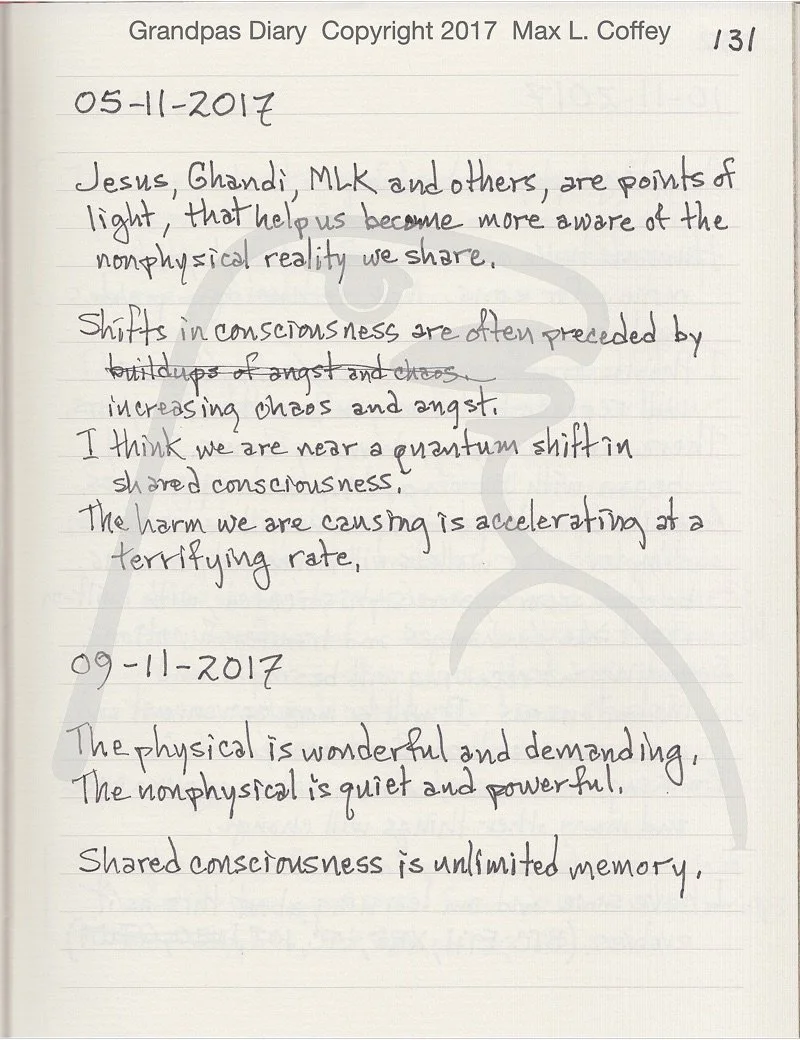 Grandpas Diary Copyright 2017 Max L. Coffey
131
05-11-2017
Jesus, Ghandi, MLK and others, are points of
light, that help us become more aware of the
nonphysical reality we share.
Shifts in consciousness are often preceded by
buildups of angst and chaos.
increasing chaos and angst.
I think we are near a quantum shift in
shared consciousness.
The harm we are causing is accelerating at a
terrifying rate.
09-11-2017
The physical is wonderful and demanding.
The nonphysical is quiet and powerful.
Shared consciousness is unlimited memory.